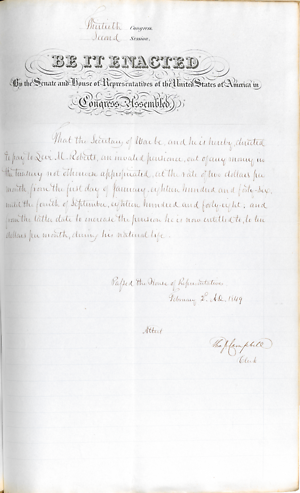 Thirtieth Congress
Second Session
BE IT ENACTED
By the Senate and House of Representatives of the United States of America in
Congress Assembled
That the Secretary of War be, and he is hereby directed
to pay to Levi M. Roberts, an invalid pensioner, out of any money in
the treasury not otherwise appropriated, at the rate of two dollars per
month from the first day of January, eighteen hundred and forty-six,
until the fourth of September, eighteen hundred and forty-eight; and
from the latter date to increase the pension he is now entitled to, to ten
dollars per month, during his natural life.
Passed the House of Representatives
February 1849
Attest
Campbell
Clerk